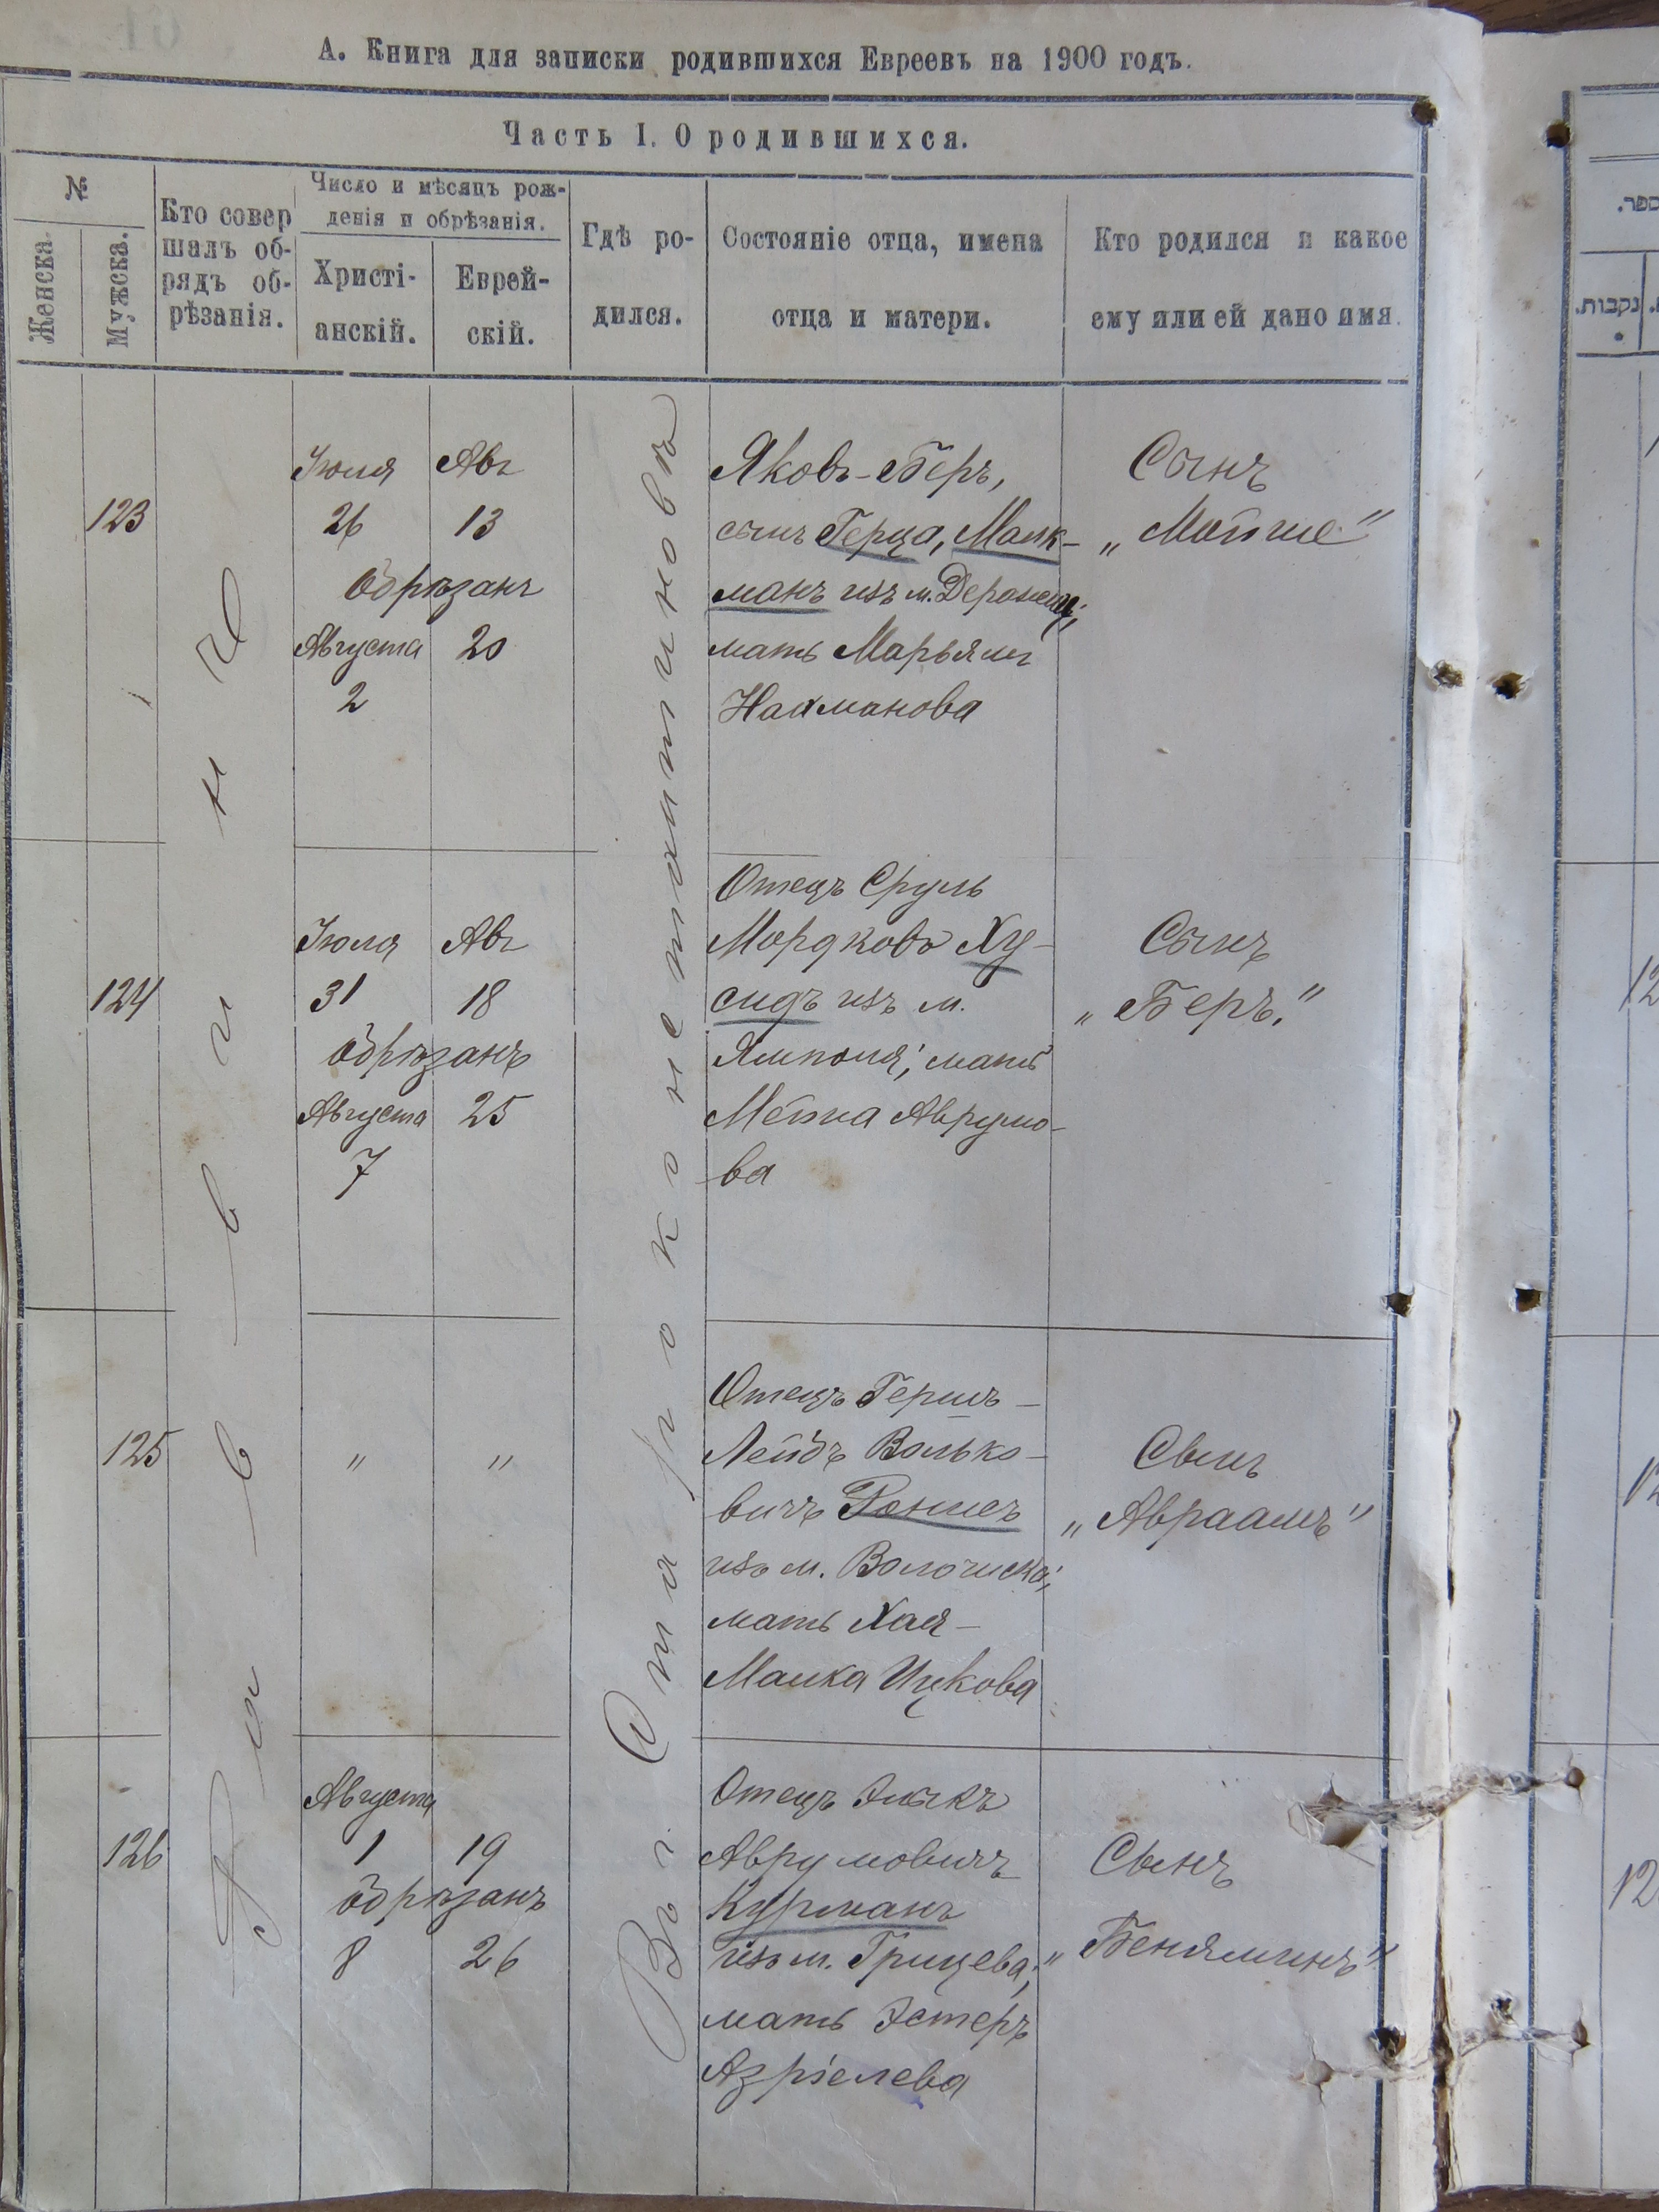 А. Книга для записки родившихся Евреевъ на 1900 годъ.
Часть I. О родившихся.
№
Женска.
Мужска.
Кто совер
шалъ об-
рядъ об-
рѣзанія.
Число и мѣсяцъ рож-
денія и обрѣзанія.
Христі-
анскій.
Еврей-
скій.
Гдѣ ро-
дился.
Состояніе отца, имена
отца и матери.
Кто родился и какое
ему или ей дано имя.
Раввинъ
Въ г. Староконстантиновѣ
123
Іюля
26
Авг
13
Обрѣзанъ
Августа
2
20
Яковъ-Беръ,
сынъ Герца, Малк-
манъ изъ м. Деражни;
мать Марьямъ
Нахманова
Сынъ
„Мойше"
124
Іюля
31
Авг
18
Обрѣзанъ
Августа
7
25
Отецъ Сруль
Мордковъ Ху-
сидъ изъ м.
Ямполя; мать
Мейта Аврумо-
ва
Сынъ
„Беръ."
125
"
"
Отецъ Гершъ-
Лейбъ Волько-
вичъ
изъ м. Волочиска;
мать Хая-
Малка Ицкова
Сынъ
„Авраамъ"
126
Августа
1
19
Обрѣзанъ
8
26
Отецъ
Аврумовичъ
Курманъ
изъ м. Грицева;
мать Эстеръ
Азріелева
Сынъ
„Беняминъ"
ספר.
נקבות.
12
12
12